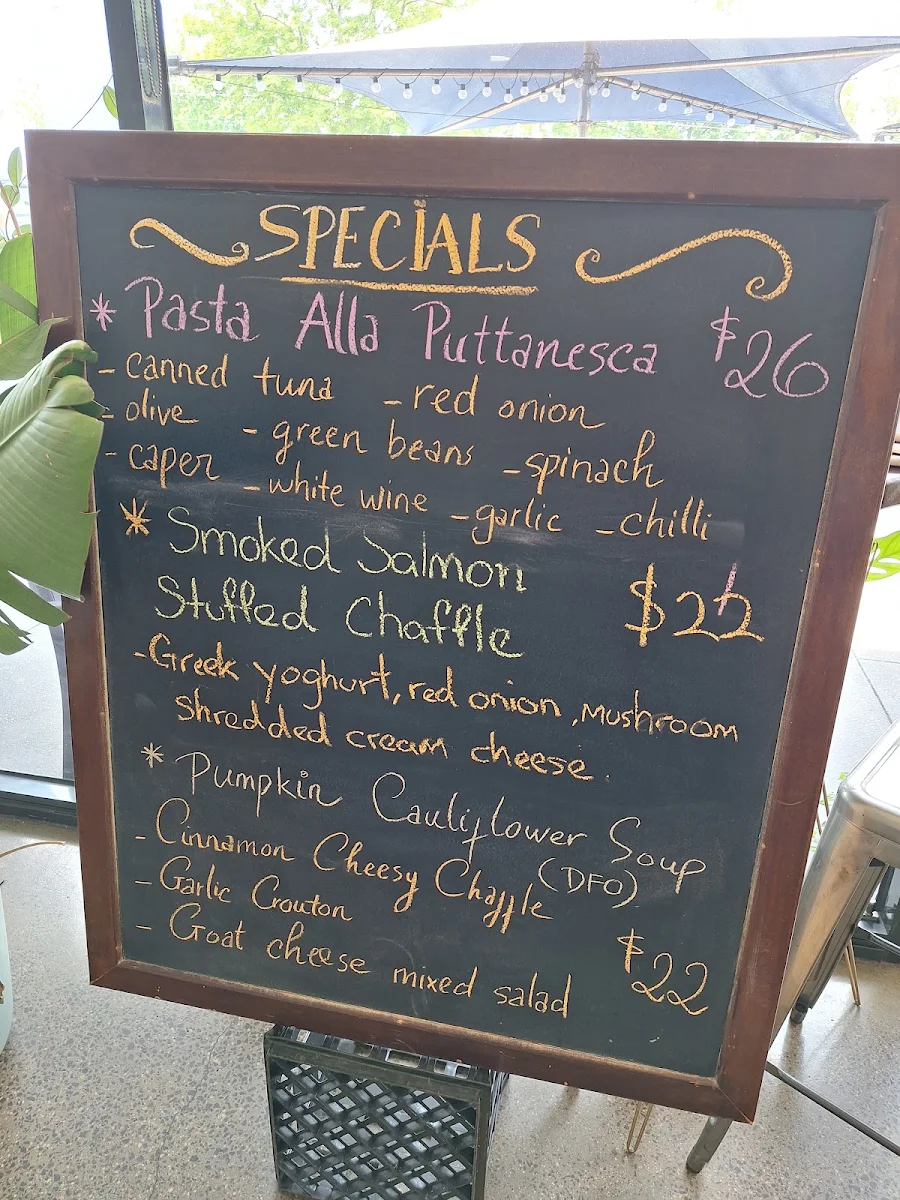 SPECIALS
* Pasta Alla Puttanesca $26
- canned tuna - red onion
- olive - green beans - spinach
- caper - white wine - garlic - chilli
* Smoked Salmon
Stuffed Chaffle
- Greek yoghurt, red onion, mushroom
shredded cream cheese.
* Pumpkin Cauliflower Soup
(DFO)
- Cinnamon Cheesy Chaffle
- Garlic Crouton
- Goat cheese mixed salad $22